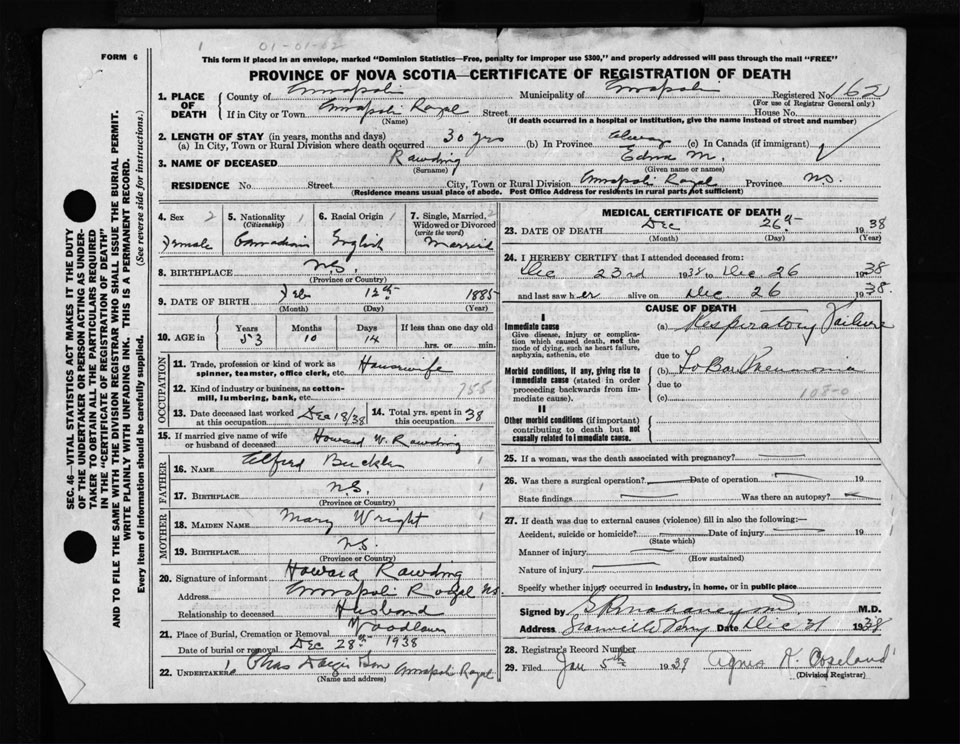 1 01-01-02
FORM 6
This form if placed in an envelope, marked "Dominion Statistics—Free, penalty for improper use $300," and properly addressed will pass through the mail "FREE"
PROVINCE OF NOVA SCOTIA—CERTIFICATE OF REGISTRATION OF DEATH
1. PLACE OF DEATH
County of Annapolis Municipality of Annapolis Registered No. 162
(For use of Registrar General only)
If in City or Town Annapolis Royal Street House No.
(Name) (If death occurred in a hospital or institution, give the name instead of street and number)
2. LENGTH OF STAY (in years, months and days)
(a) In City, Town or Rural Division where death occurred 30 yrs (b) In Province always (c) In Canada (if immigrant)
3. NAME OF DECEASED Rawding Edna M.
(Surname) (Given name or names)
RESIDENCE No. Street City, Town or Rural Division Annapolis Royal Province N.S.
(Residence means usual place of abode. Post Office Address for residents in rural parts not sufficient)
SEC. 46—VITAL STATISTICS ACT MAKES IT THE DUTY
OF THE UNDERTAKER OR PERSON ACTING AS UNDER-
TAKER TO OBTAIN ALL THE PARTICULARS REQUIRED
IN THE "CERTIFICATE OF REGISTRATION OF DEATH"
AND TO FILE THE SAME WITH THE DIVISION REGISTRAR WHO SHALL ISSUE THE BURIAL PERMIT.
WRITE PLAINLY WITH UNFADING INK. THIS IS A PERMANENT RECORD.
Every item of information should be carefully supplied. (See reverse side for instructions.)
4. Sex 2 5. Nationality 1 6. Racial Origin 1 7. Single, Married, 2
(Citizenship) Widowed or Divorced
(write the word)
Female Canadian English Married
8. BIRTHPLACE N.S.
(Province or Country)
9. DATE OF BIRTH Feb 12th 1885
(Month) (Day) (Year)
10. AGE in Years Months Days If less than one day old
53 10 14 hrs. or min.
OCCUPATION
11. Trade, profession or kind of work as
spinner, teamster, office clerk, etc. Housewife
12. Kind of industry or business, as cotton-
mill, lumbering, bank, etc. 755
13. Date deceased last worked Dec 18/38 14. Total yrs. spent in 38
at this occupation this occupation
15. If married give name of wife
or husband of deceased Howard W. Rawding
FATHER
16. NAME Alfred Buckler 1
17. BIRTHPLACE N.S. 1
(Province or Country)
MOTHER
18. MAIDEN NAME Mary Wright 1
19. BIRTHPLACE N.S. 1
(Province or Country)
20. Signature of informant Howard Rawding
Address Annapolis Royal N.S.
Relationship to deceased Husband
21. Place of Burial, Cremation or Removal Woodlawn
Date of burial or removal Dec 28th 1938
22. UNDERTAKER Chas Son Annapolis Royal
(Name and address)
MEDICAL CERTIFICATE OF DEATH
23. DATE OF DEATH Dec 26th 1938
(Month) (Day) (Year)
24. I HEREBY CERTIFY that I attended deceased from:
Dec 23rd 1938 to Dec 26 1938
and last saw her alive on Dec 26 1938.
CAUSE OF DEATH
I
Immediate cause (a) Respiratory Failure
Give disease, injury or complica-
tion which caused death, not the
mode of dying, such as heart failure,
asphyxia, asthenia, etc due to
Morbid conditions, if any, giving rise to (b) Lobar Pneumonia
immediate cause (stated in order due to
proceeding backwards from im-
mediate cause). (c) 108-0
II
Other morbid conditions (if important)
contributing to death but not
causally related to immediate cause.
25. If a woman, was the death associated with pregnancy?
26. Was there a surgical operation? Date of operation 19
State findings Was there an autopsy?
27. If death was due to external causes (violence) fill in also the following:—
Accident, suicide or homicide? Date of injury 19
(State which)
Manner of injury
(How sustained)
Nature of injury
Specify whether injury occurred in industry, in home, or in public place
Signed by M.D.
Address Granville Ferry Date Dec 31 1938
28. Registrar's Record Number
29. Filed Jan 5th 1939 Agnes K. Copeland
(Division Registrar)